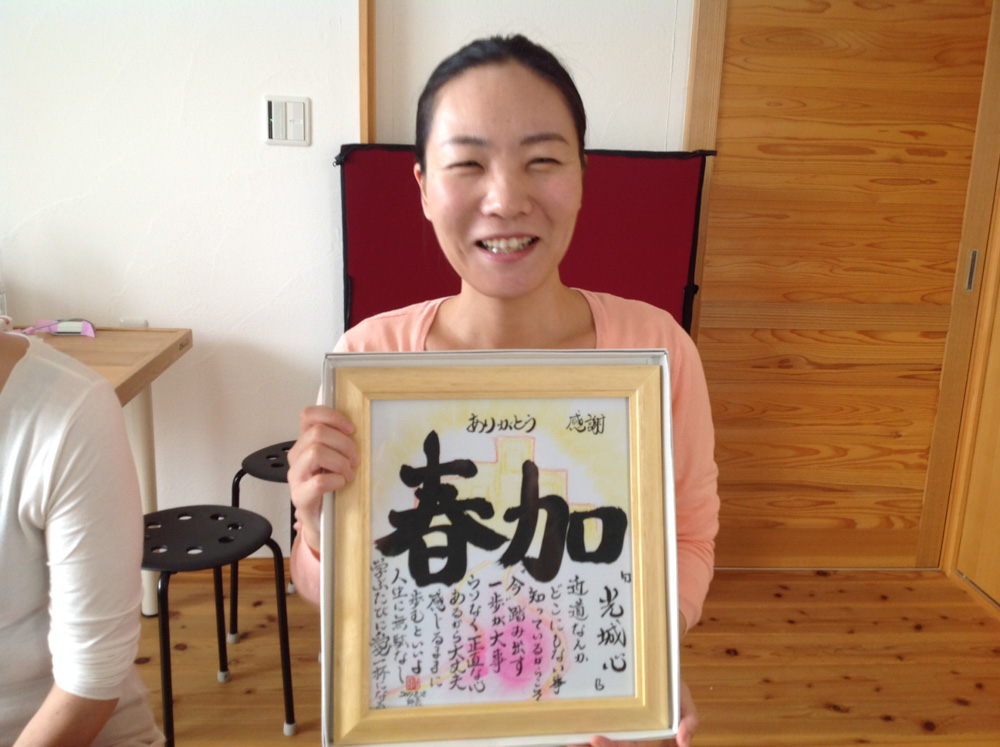 ありがとう 感謝
加春
『光城心』
近道なんか
どこにもない事
知っているからこそ
今踏み出す
一歩が大事
ウソなく正直な心
あるから大丈夫
感じるままに
歩むといいよ
人生に無駄なし
学ぶたびに勇一杯になる